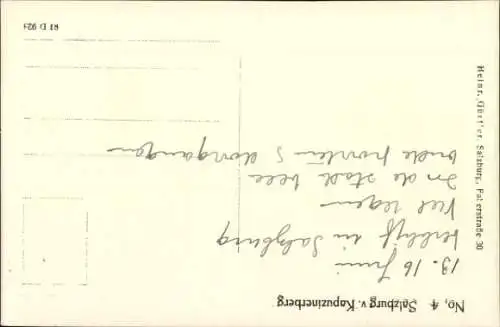 No. 4 Salzburg v. Kapuzinerberg
13. 16 Juni
verblijf in Salzburg
Veel regen
In de stad vele
oude
Heinr. Gürtler, Salzburg, Faberstraße 30
81 D 923